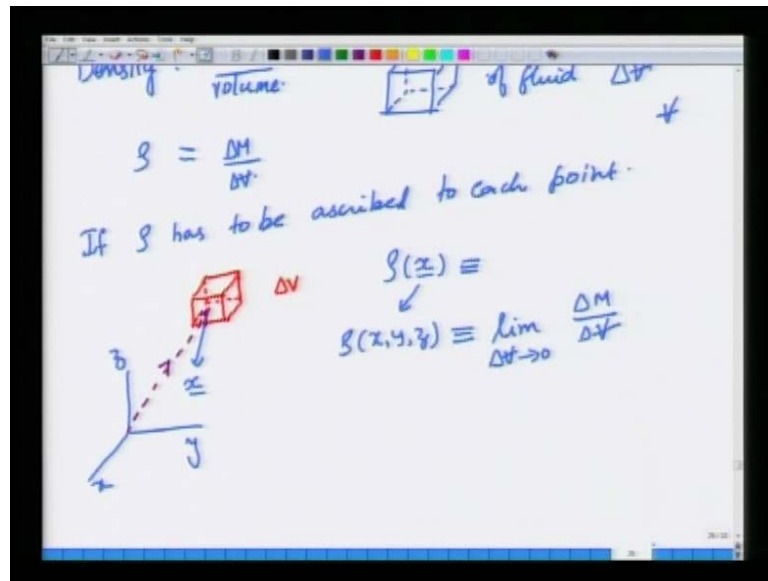 Density : volume. of fluid ΔV
V
ρ = ΔM / ΔV.
If ρ has to be ascribed to each point.
ΔV
ρ(x) ≡
ρ(x,y,z) ≡ lim ΔV→0 ΔM / ΔV
z
x
y
x